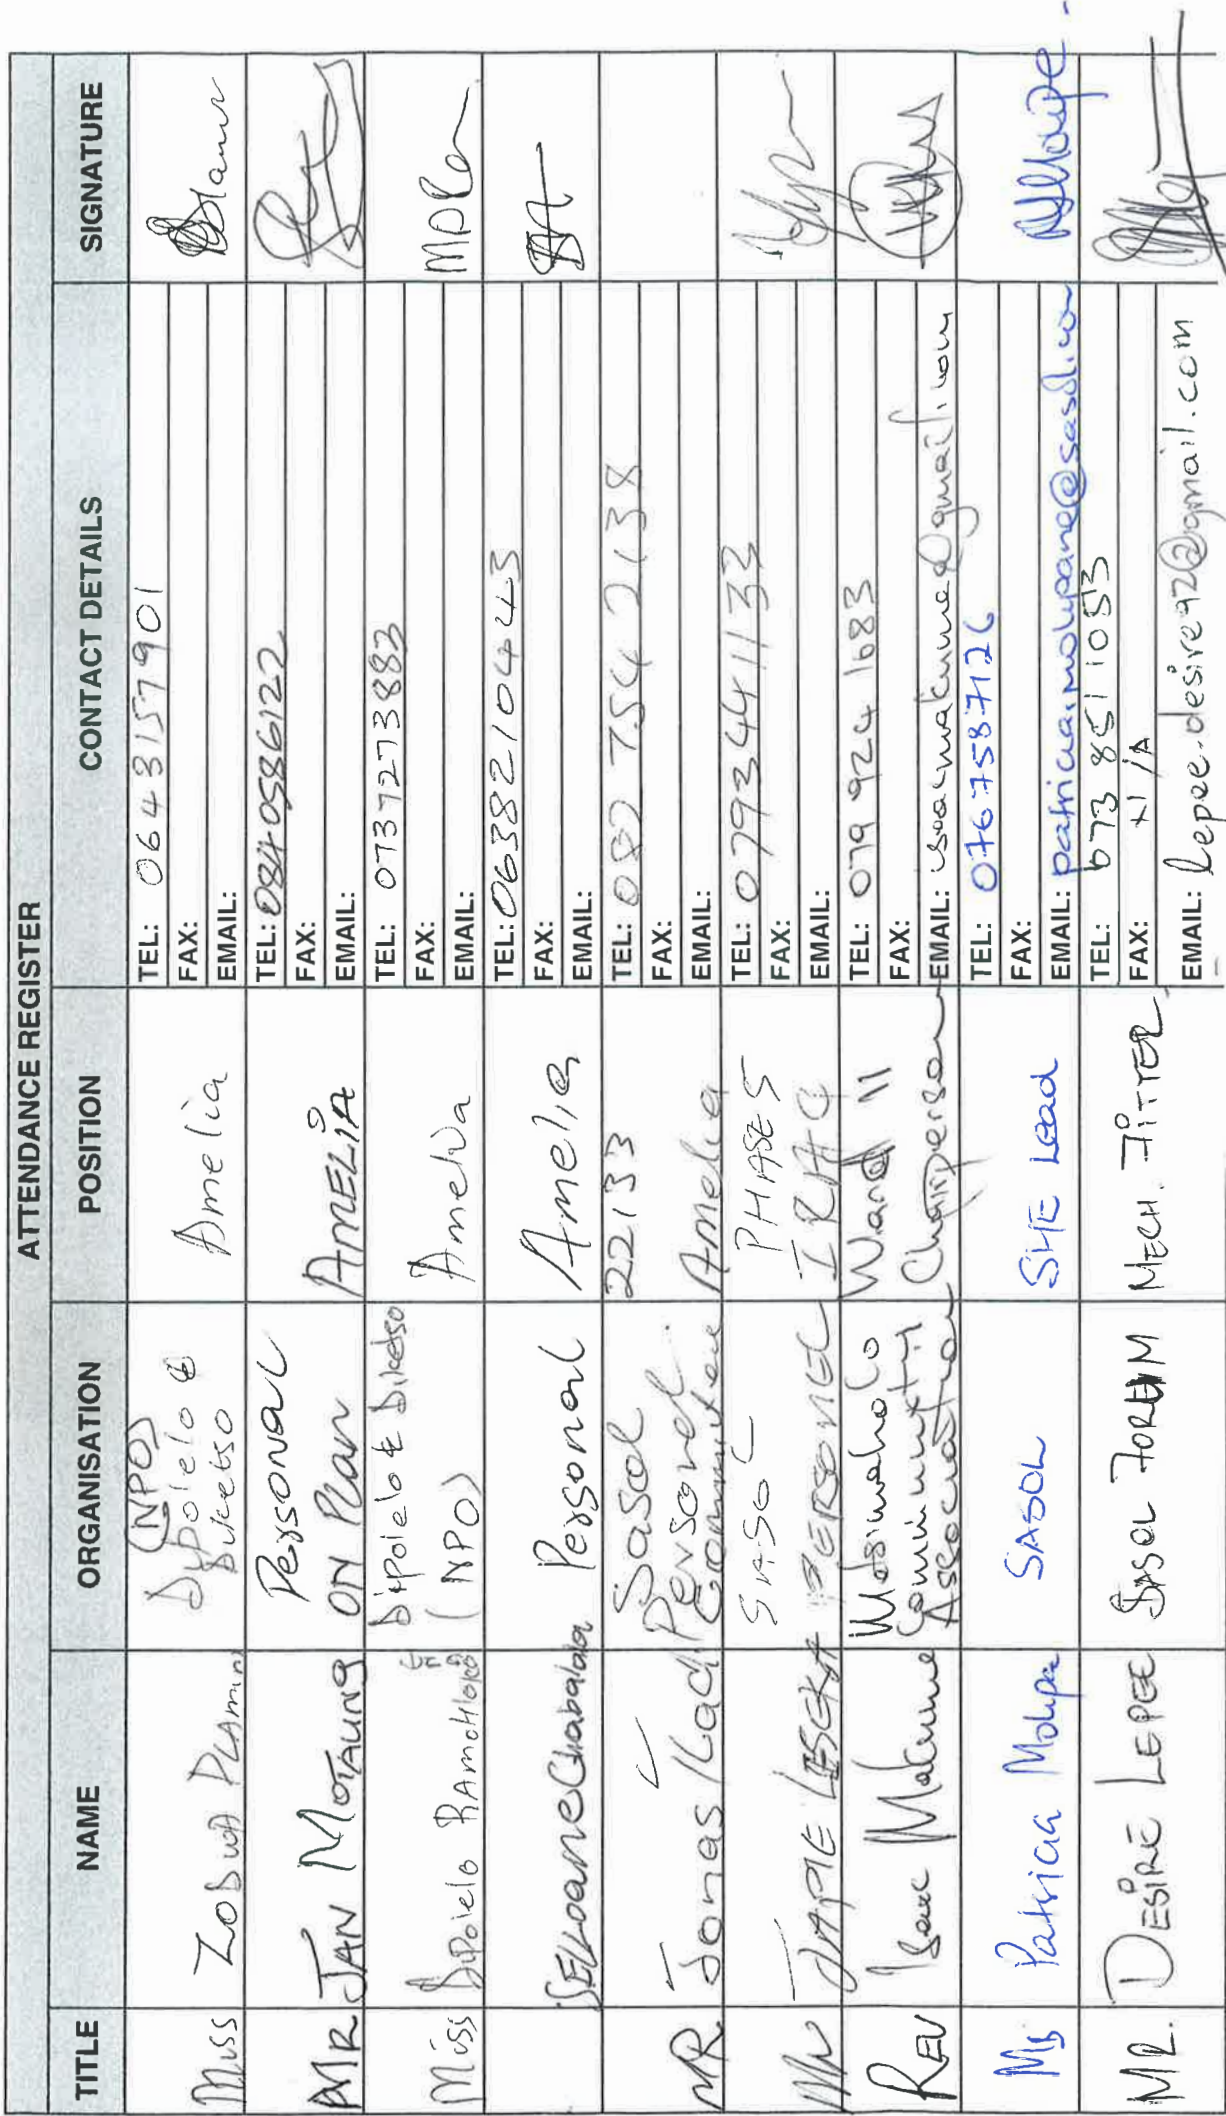 ATTENDANCE REGISTER
TITLE NAME ORGANISATION POSITION CONTACT DETAILS SIGNATURE
Miss
(NPO)
Dipolelo &
Diketso
Amelia
TEL: 0643157901
FAX:
EMAIL:
MR JAN MOTAUNG
Personal
ON Plan
AMELIA
TEL: 0840586122
FAX:
EMAIL:
Miss Dipolelo
Dipolelo & Diketso
(NPO)
Amelia
TEL: 0737273883
FAX:
EMAIL:
SELLOANE
Personal
Amelia
TEL: 0638210443
FAX:
EMAIL:
MR Jonas
Sasol
Personel
Committee
22133
Amelia
TEL: 082 754 2138
FAX:
EMAIL:
SASOL
PERSONEL
PHASE 5
TEL: 0793441133
FAX:
EMAIL:
REV Isaac Makume
Metsimaholo
Community
Association
Ward 11
Chairperson
TEL: 079 924 1683
FAX:
EMAIL: isaacmakume@gmail.com
Ms Patricia Molupe
SASOL
SHE Lead
TEL: 0767587126
FAX:
EMAIL:
MR. DESIRÉ LEPEE
SASOL FORUM
MECH. FITTER
TEL: 073 851 1053
FAX: N/A
EMAIL: lepee.desire92@gmail.com